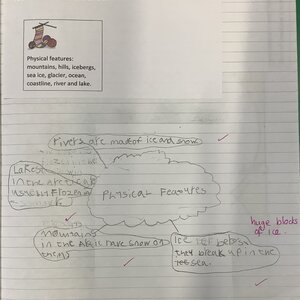 Physical features:
mountains, hills, icebergs,
sea ice, glacier, ocean,
coastline, river and lake.
rivers are made of ice and snow
Lakes
in the Arctic are
usually frozen
Physical Features
huge blocks
of ice.
mountains
in the have snow on
them
Ice
they break up in the
sea.